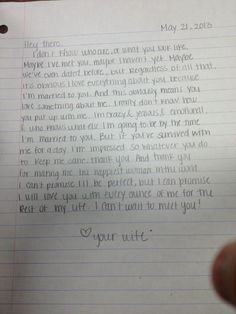 May 21, 2013
Hey there,
I don't know who are, or what you our life.
Maybe I've met you, maybe I haven't yet. Maybe
we've even dated before, but regardless of all that,
it's obvious I love everything about you because
I'm married to you. And this obviously means you
love something about me. I really don't know how
you put up with me. I'm crazy & jealous & emotional,
& who knows what else I'm going to be by the time
I'm married to you. But if you've survived with
me for a day, I'm impressed. So whatever you do
to keep me sane, thank you. And thank you
for making me the happiest woman in the world.
I can't promise I'll be perfect, but I can promise
I will love you with every ounce of me for the
rest of my life. I can't wait to meet you!
♡ your wife